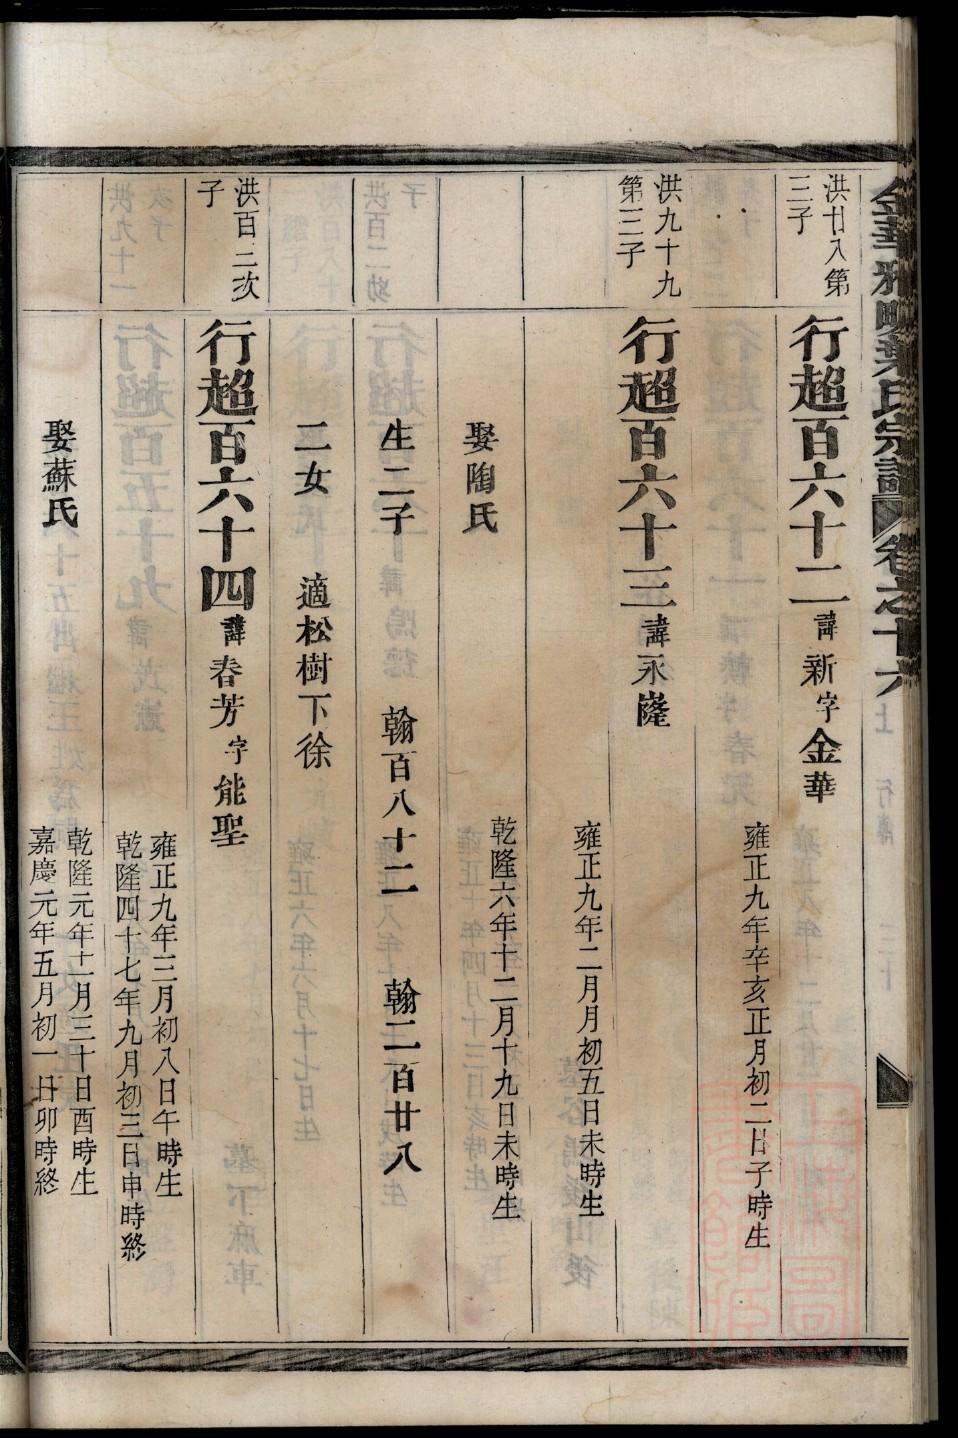 金華雅畈葉氏宗譜 卷之十六上 行傳
洪廿八第
三子
行超百六十二諱新字金華
雍正九年辛亥正月初二日子時生
洪九十九
第三子
行超百六十三諱永隆
雍正九年二月初五日未時生
娶陶氏
乾隆六年十二月十九日未時生
生二子 翰百八十二 翰二百廿八
二女 適松樹下徐
洪百二次
子
行超百六十四諱春芳字能聖
雍正九年三月初八日午時生
乾隆四十七年九月初三日申時終
娶蘇氏
乾隆元年十一月三十日酉時生
嘉慶元年五月初一日卯時終